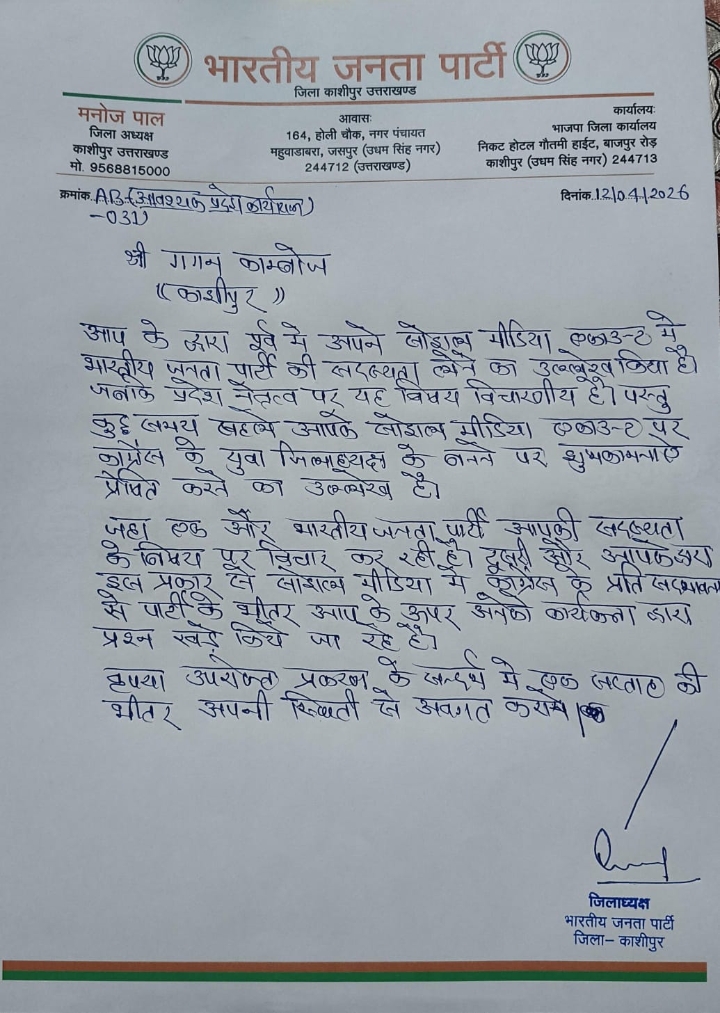 भारतीय जनता पार्टी
जिला काशीपुर उत्तराखण्ड
मनोज पाल
जिला अध्यक्ष
काशीपुर उत्तराखण्ड
मो. 9568815000
आवासः
164, होली चौक, नगर पंचायत
महुवाडाबरा, जसपुर (उधम सिंह नगर)
244712 (उत्तराखण्ड)
कार्यालयः
भाजपा जिला कार्यालय
निकट होटल गौतमी हाईट, बाजपुर रोड़
काशीपुर (उधम सिंह नगर) 244713
क्रमांक. (आवश्यक प्रदेश
-031)
दिनांक.12/04/2026
श्री गगन काम्बोज
((काशीपुर))
आप के द्वारा पूर्व मे अपने सोशल मीडिया एकाउन्ट मे
भारतीय जनता पार्टी की सदस्यता लेने का उल्लेख किया है।
जनके प्रदेश नेतृत्व पर यह विषय विचारणीय है। परन्तु
कुछ समय पहले आपके सोशल मीडिया एकाउन्ट पर
कांग्रेस के युवा जिलाध्यक्ष के बनने पर शुभकामनाऐ
प्रेषित करने का उल्लेख है।
जहा एक और भारतीय जनता पार्टी आपकी सदस्यता
के विषय पर विचार कर रही है। दूसरी और आपके द्वारा
इस प्रकार से सोशल मीडिया मे कांग्रेस के प्रति सदभावना
से पार्टी के भीतर आप के ऊपर अनेको कार्यकर्ता द्वारा
प्रश्न खड़े किये जा रहे है।
कृपया उपरोक्त प्रकरण के सन्दर्भ मे एक सप्ताह की
भीतर अपनी स्थिती से अवगत कराये।
जिलाध्यक्ष
भारतीय जनता पार्टी
जिला– काशीपुर